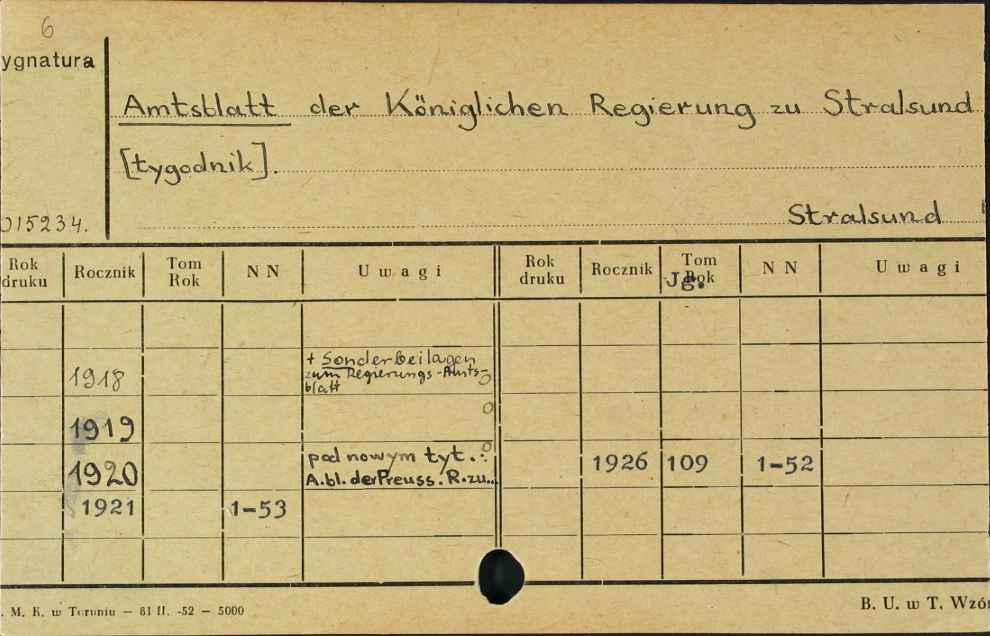 6
ygnatura
Amtsblatt der Königlichen Regierung zu Stralsund
[tygodnik].
015234.
Stralsund
Rok druku Rocznik Tom Rok N N Uwagi Rok druku Rocznik Tom Rok Jg. N N Uwagi
1918 + Sonderbeilagen
zum Regierungs-Amts-
blatt
1919
1920 pod nowym tyt.: 1926 109 1-52
A.bl. der Preuss. R. zu...
1921 1-53
. M. K. w Toruniu — 61 II. -52 — 5000
B. U. w T. Wzór